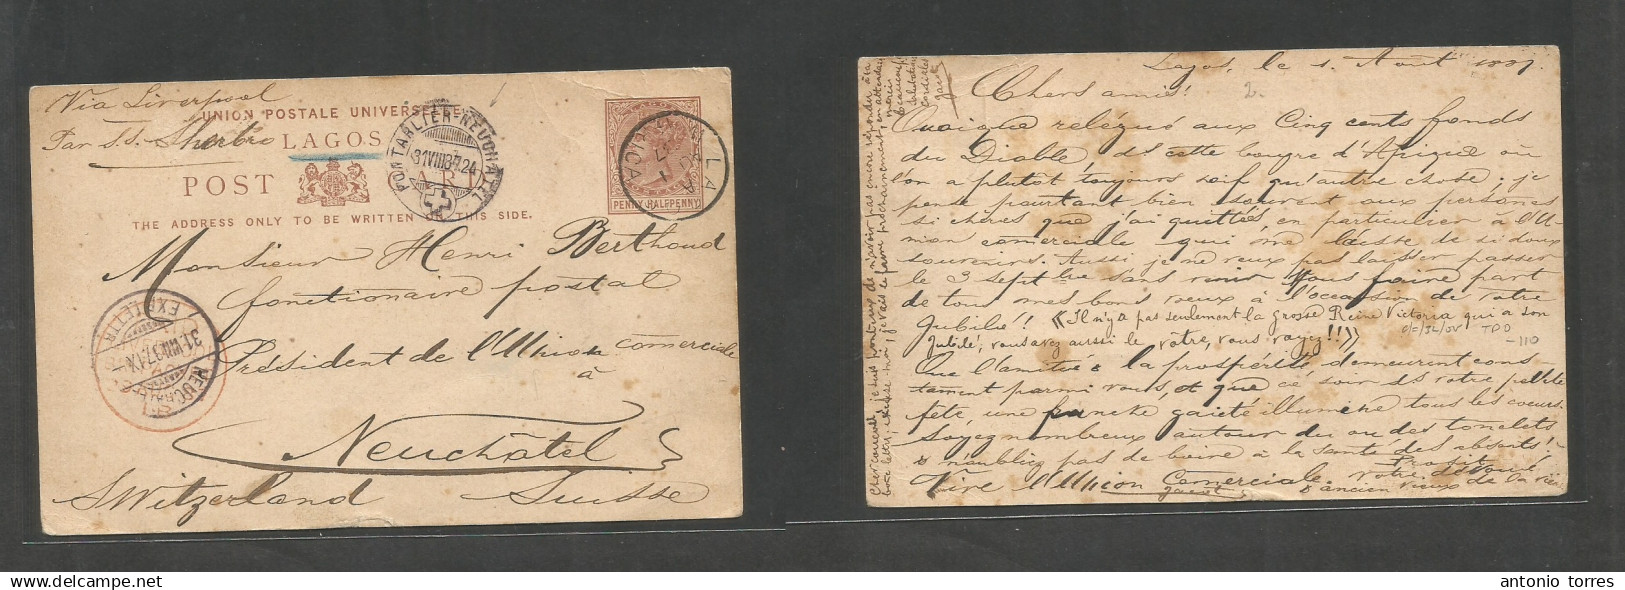 Via Liverpool
UNION POSTALE UNIVERSELLE
Par s.s. Sherbro
LAGOS
POST
THE ADDRESS ONLY TO BE WRITTEN ON THIS SIDE.
PENNY HALFPENNY
PONTARLIER-NEUCHATEL
31 VIII 87 24
Monsieur Henri Berthoud
fonctionaire postal
Président de l'Union comerciale
à
Neuchâtel
Switzerland Suisse
EXP. LETTR.
31 VIII 87 IX
NEUCHATEL
Lagos, le 1. Août 1887.
Chers amis! 2.
Quoique relégué aux Cinq cents fonds
du Diable, ds cette bougre d'Afrique où
l'on a plutôt toujours soif qu'autre chose; je
pense pourtant bien souvent aux personnes
si chères que j'ai quittées, en particulier à l'U-
nion comerciale qui me laisse de si doux
souvenirs. Aussi je ne veux pas laisser passer
le 3 septbre sans venir Vous faire part
de tous mes bons voeux à l'occasion de votre
Jubilé! «Il n'y a pas seulement la grosse Reine Victoria qui a son
Jubilé, vous avez aussi le vôtre, vous voyez!!»
TPO
-110
Que l'amitié & la prospérité demeurent cons-
tament parmi vous, et que cé soir ds votre petite
fête, une franche gaieté illumine tous les coeurs.
Soyez nombreux autour du ou des tonelets
& n'oubliez pas de boire à la santé des absents!
Vive l'Union Comerciale. Votre dévoué
& ancien vieux de la vieille